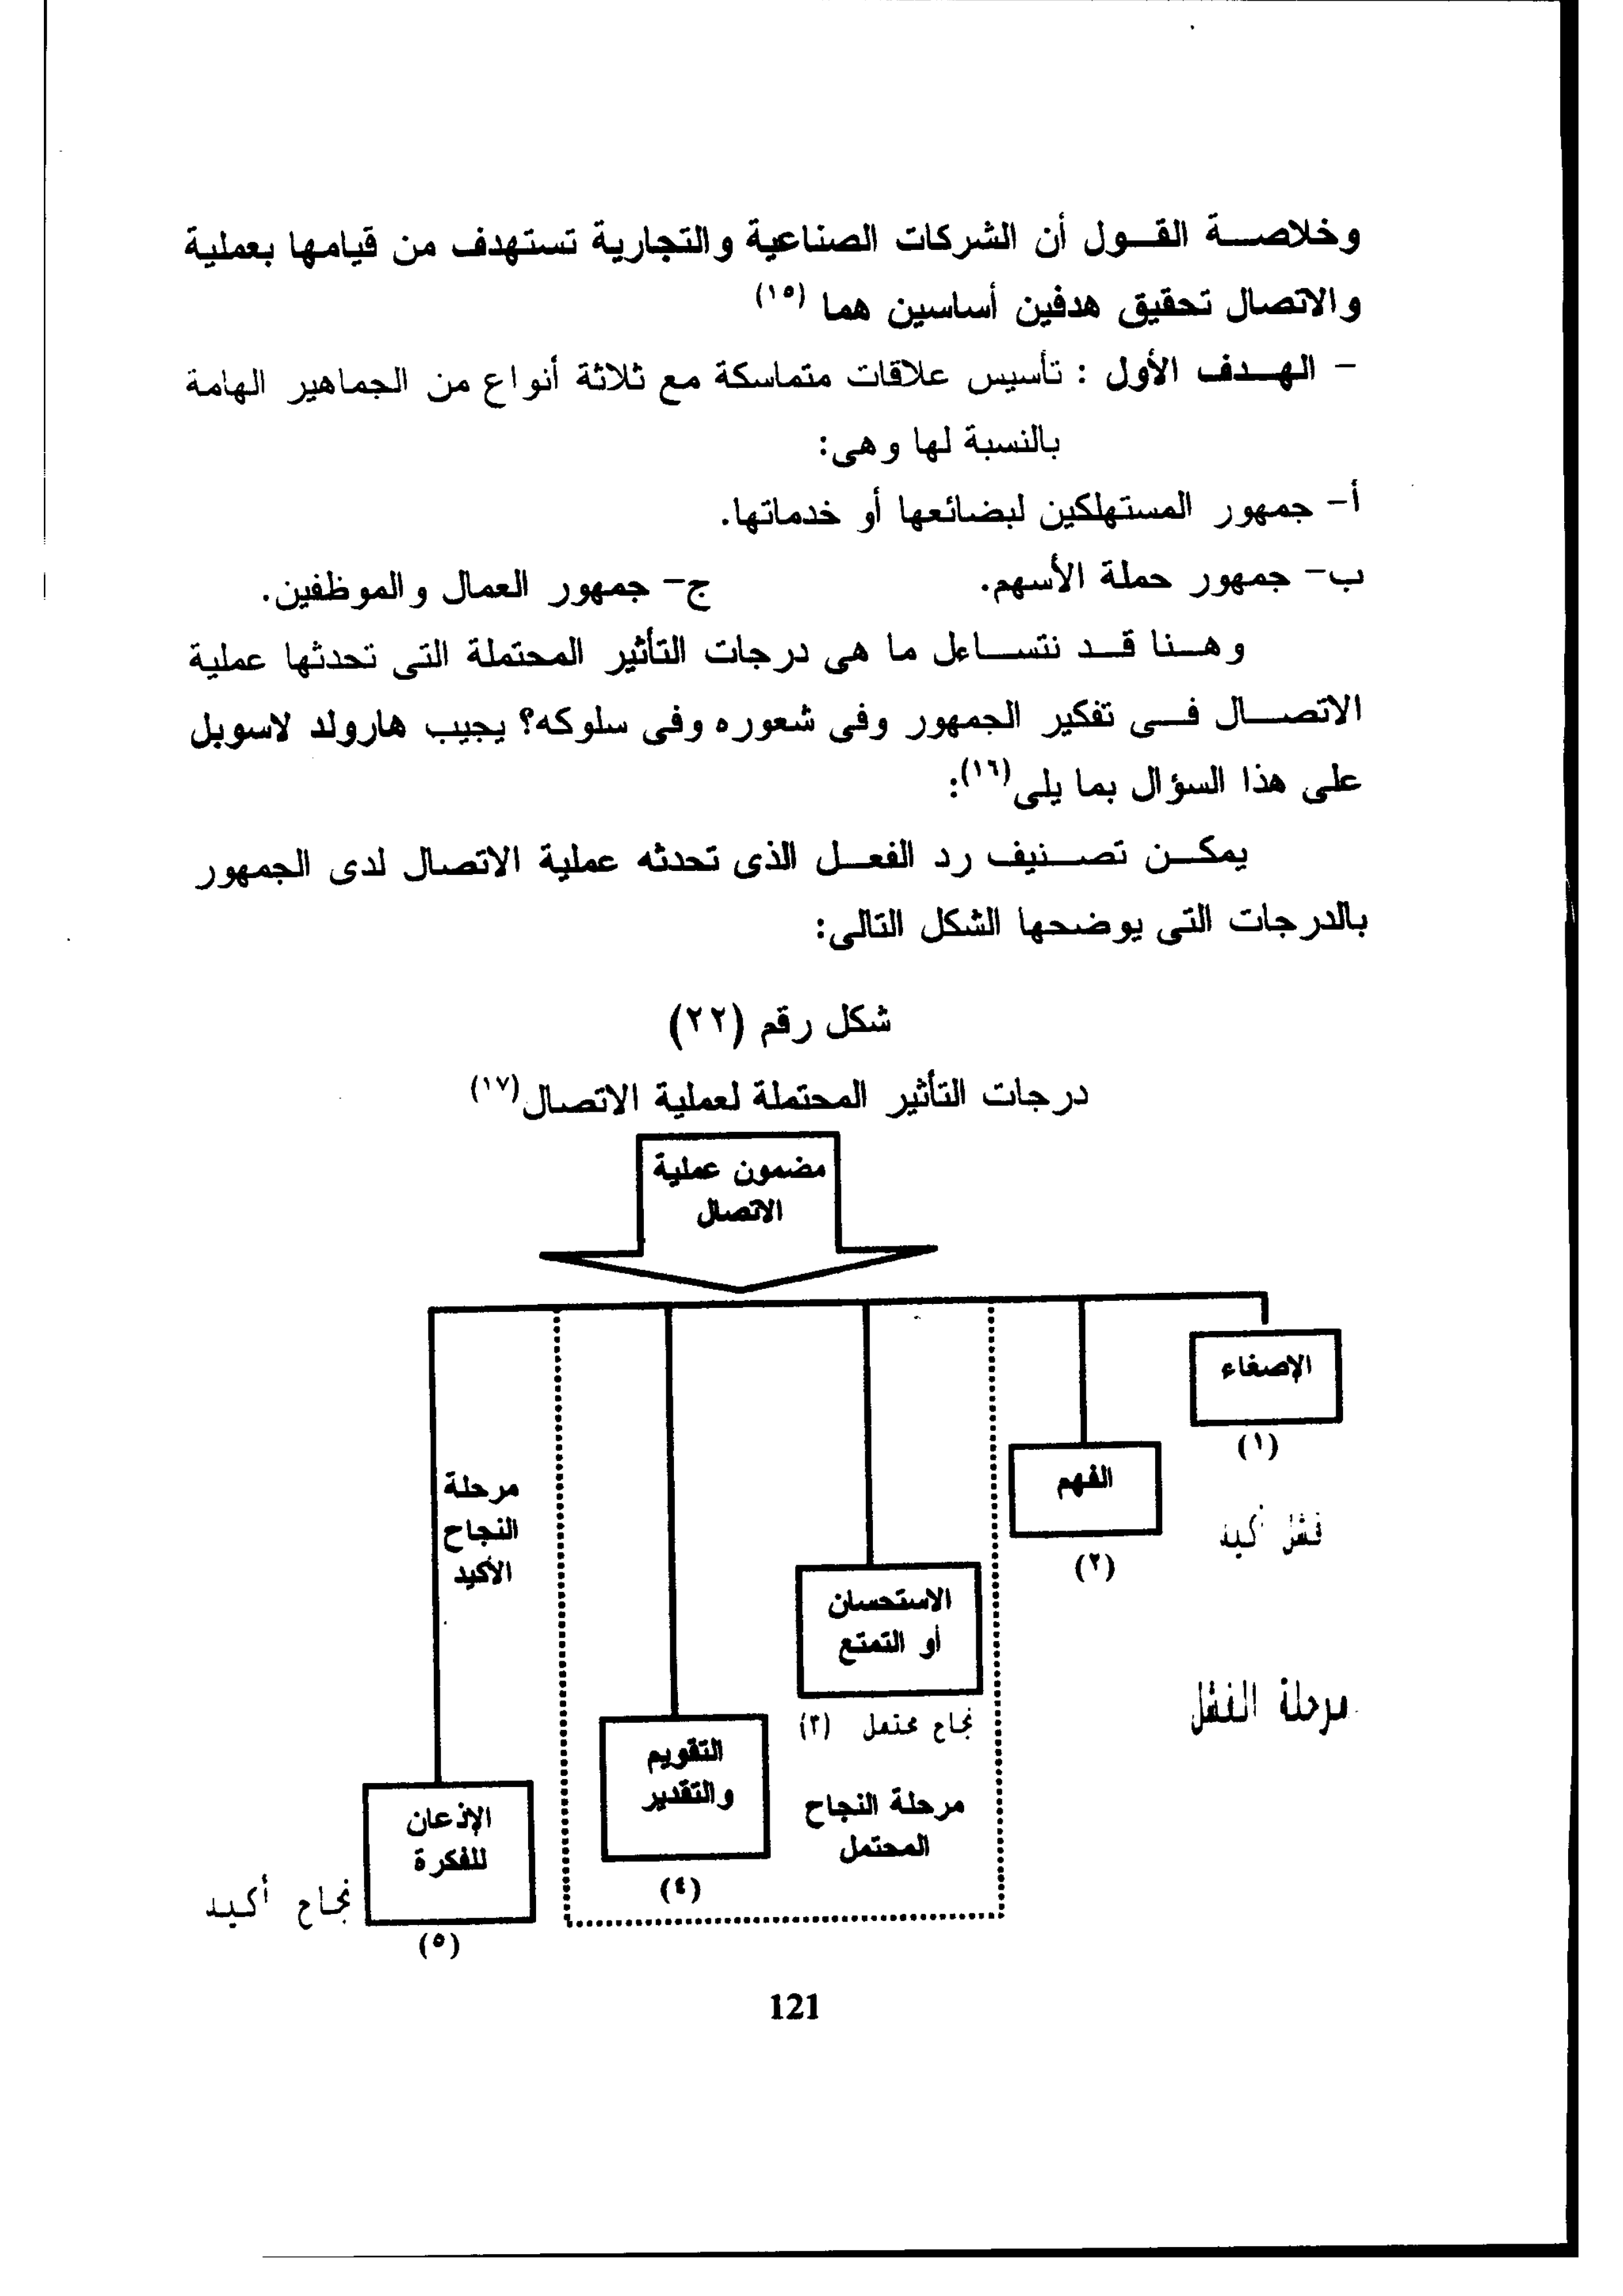 وخلاصة القول أن الشركات الصناعية والتجارية تستهدف من قيامها بعملية
والاتصال تحقيق هدفين أساسين هما (١٥)
- الهدف الأول : تأسيس علاقات متماسكة مع ثلاثة أنواع من الجماهير الهامة
بالنسبة لها وهى:
أ- جمهور المستهلكين لبضائعها أو خدماتها.
ب- جمهور حملة الأسهم. ج- جمهور العمال والموظفين.
وهنا قد نتساءل ما هى درجات التأثير المحتملة التى تحدثها عملية
الاتصال فى تفكير الجمهور وفى شعوره وفى سلوكه؟ يجيب هارولد لاسويل
على هذا السؤال بما يلى(١٦):
يمكن تصنيف رد الفعل الذى تحدثه عملية الاتصال لدى الجمهور
بالدرجات التى يوضحها الشكل التالى:
شكل رقم (٢٢)
درجات التأثير المحتملة لعملية الاتصال(١٧)
مضمون عملية
الاتصال
الإصغاء
(١)
فشل أكيد
الفهم
(٢)
مرحلة الفشل
الاستحسان
أو التمتع
نجاح محتمل (٣)
مرحلة النجاح
المحتمل
التقويم
والتقدير
(٤)
مرحلة
النجاح
الأكيد
الإذعان
للفكرة
(٥)
نجاح أكيد
121